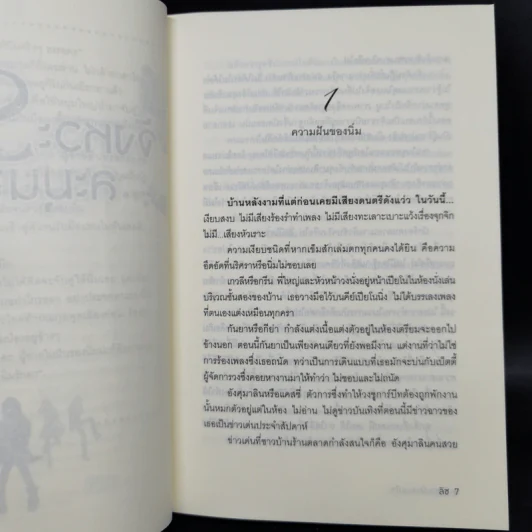 จังหวะ
ละมุน
1
ความฝันของนิ่ม
บ้านหลังงามที่แต่ก่อนเคยมีเสียงดนตรีดังแว่ว ในวันนี้...
เงียบสงบ ไม่มีเสียงร้องรำทำเพลง ไม่มีเสียงทะเลาะเบาะแว้งเรื่องจุกจิก
ไม่มี...เสียงหัวเราะ
ความเงียบชนิดที่หากเข็มสักเล่มตกทุกคนคงได้ยิน คือความ
อึดอัดที่นริศราหรือนิ่มไม่ชอบเลย
เกวลีหรือกรีน พี่ใหญ่และหัวหน้าวงนั่งอยู่หน้าเปียโนในห้องนั่งเล่น
บริเวณชั้นสองของบ้าน เธอวางมือไว้บนคีย์เปียโนนิ่ง ไม่ได้บรรเลงเพลง
ที่ตนเองแต่งเหมือนทุกครา
กันยาหรือกีย่า กำลังแต่งเนื้อแต่งตัวอยู่ในห้องเตรียมจะออกไป
ข้างนอก ตอนนี้กันยาเป็นเพียงคนเดียวที่ยังพอมีงาน แต่งานที่ว่าไม่ใช่
การร้องเพลงซึ่งเธอถนัด ทว่าเป็นการเดินแบบที่เธอมักจะบ่นกับเบ็ตตี้
ผู้จัดการวงซึ่งคอยหางานมาให้ทำว่า ไม่ชอบและไม่ถนัด
อังศุมาลินหรือแคลซี่ ตัวการซึ่งทำให้วงชูการ์ป๊อทต้องถูกพักงาน
นั้นหมกตัวอยู่แต่ในห้อง ไม่อ่าน ไม่ดูข่าวบันเทิงที่ตอนนี้มีข่าวฉาวของ
เธอเป็นข่าวเด่นประจำสัปดาห์
ข่าวเด่นที่ชาวบ้านร้านตลาดกำลังสนใจก็คือ อังศุมาลินคนสวย
ลิซ 7